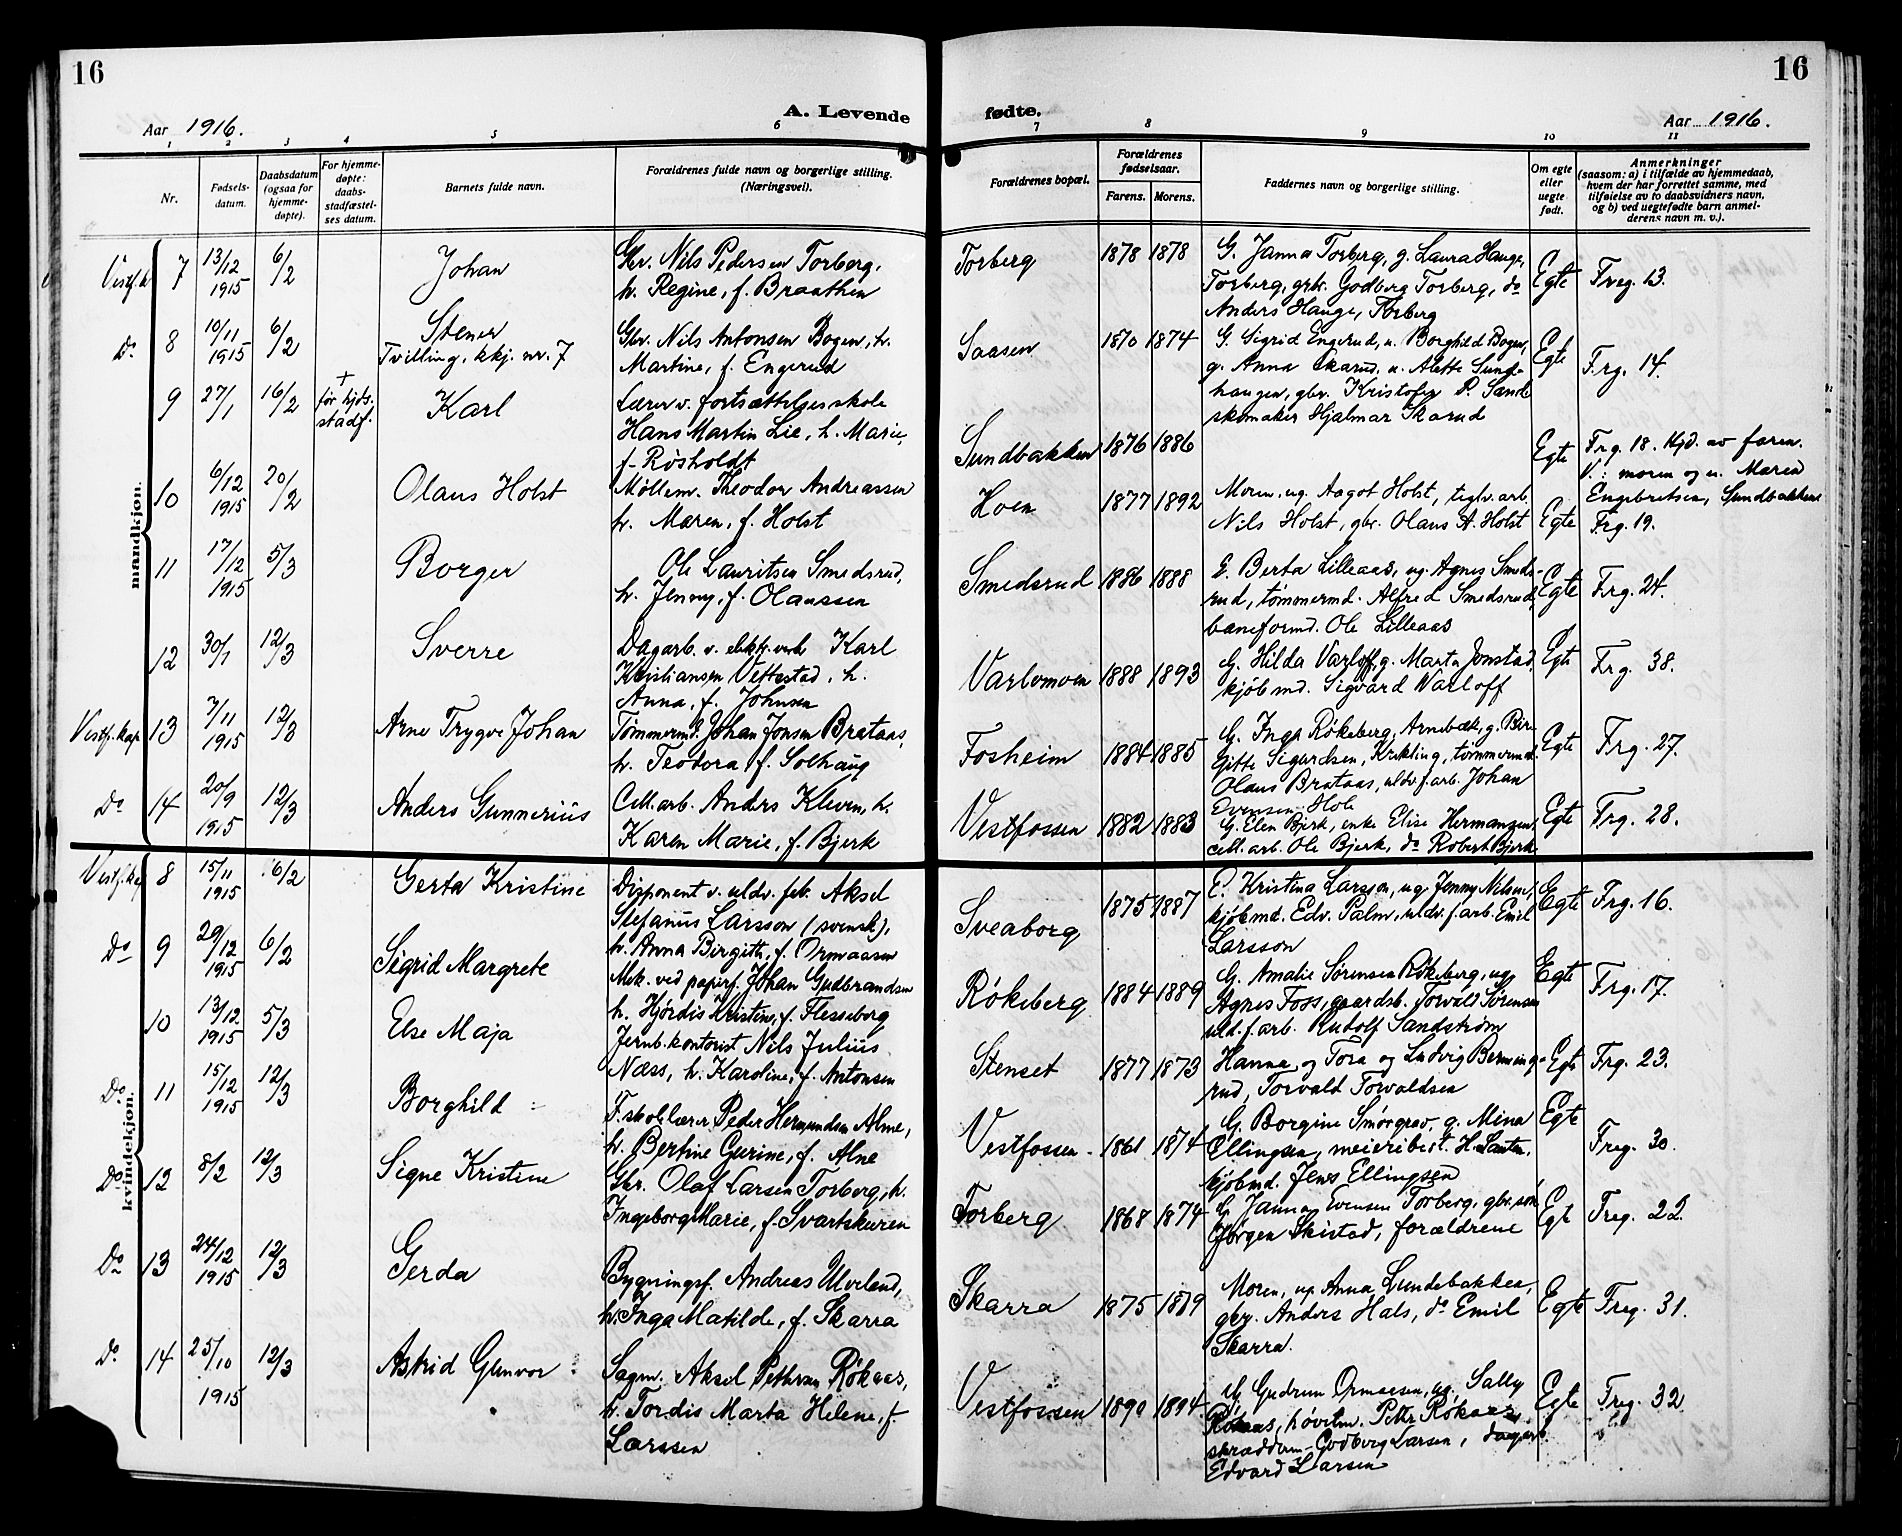 16
A. Levende
Aar 1916.
1 2 3 4 5 6
Nr.
Fødsels-
datum.
Daabsdatum
(ogsaa for
hjemme-
døpte).
For hjemme-
døpte:
daabs-
stadfæstel-
ses datum.
Barnets fulde navn.
Forældrenes fulde navn og borgerlige stilling.
(Næringsvei).
mandkjøn.
Vestf. k. 7 13/12 1915 6/2 Johan
Gbr. Nils Pedersen Torberg,
h. Regine, f. Braathen
Do 8 10/11 1915 6/2 Stener
Tvilling, kkj. nr. 7
Gbr. Nils Antonsen Bogen, h.
Martine, f. Engerud
9 27/1 16/2 + før hjds. stadf. Karl
Lærer v. fortsættelgesskole
Hans Martin Lie, h. Marie,
f. Røsholdt
10 6/12 1915 20/2 Olaus Holst
Møllem. Theodor Andreassen
h. Maren, f. Holst
11 17/12 1915 5/3 Borger
Ole Lauritsen Smedsrud,
h. Jenny, f. Olaussen
12 30/1 12/3 Sverre
Dagarb. v. elektr. verk Karl
Kristiansen Vettestad, h.
Anna, f. Johnsen
Vestf. kap. 13 7/11 1915 12/3 Arne Trygve Johan
Tømmermd. Johan Jonsen Brataas,
h. Teodora, f. Solhaug
Do 14 20/9 1915 12/3 Anders Gunnerius
Cell. arb. Anders Kleven, h.
Karen Marie, f. Bjerk
kvindekjøn.
Vestf. kap 8 15/11 1915 6/2 Gerta Kristine
Disponent v. uldv. fab. Aksel
Stefanius Larsson (svensk),
h. Anna Birgith, f. Ormaasen
Do 9 29/12 1915 6/2 Sigrid Margrete
Mek. ved papirf. Johan Gudbrandsen
h. Hjørdis Kristine, f. Flesseberg
10 13/12 1915 5/3 Else Maja
Jernb. kontorist Nils Julius
Næss, h. Karoline, f. Antonsen
Do 11 15/12 1915 12/3 Borghild
F. skolelærer Peder Hermundsen Alme,
h. Bertine Gurine, f. Alne
Do 12 8/2 12/3 Signe Kristine
Gbr. Olaf Larsen Torberg, h.
Ingeborg Marie, f. Svartskuren
Do 13 24/12 1915 12/3 Gerda
Bygningsf. Andreas Ulveland,
h. Inga Matilde, f. Skarra
Do 14 25/10 1915 12/3 Astrid Gunvor
Sagm. Aksel Pettersen Røkaas,
h. Tordis Marta Helene, f.
Larssen
16
fødte.
Aar 1916.
7 8 9 10 11
Forældrenes bopæl.
Forældrenes
fødselsaar.
Farens. Morens.
Faddernes navn og borgerlige stilling.
Om egte
eller
uegte
født.
Anmerkninger
(saasom: a) i tilfælde av hjemmedaab,
hvem der har forrettet samme, med
tilføielse av to daabsvidners navn,
og b) ved uegtefødte barn anmel-
derens navn m. v.).
Torberg 1878 1878
G. Janna Torberg, g. Laura Hauge,
Torberg, grbr. Godberg Torberg, do
Anders Hauge, Torberg
Egte Freg. 13.
Saasen 1870 1874
G. Sigrid Engerud, u. Borghild Bogen,
g. Anna Skarud, u. Alette Sund-
haugen, gbr. Kristofer P. Sande
skomaker Hjalmar Skarud
Egte Frg. 14.
Sundbakken 1876 1886
Egte Frg. 18. Hjd. av faren.
V: moren og u. Maren
Engebretsen, Sundbakken
Hoen 1877 1892
Moren, ug. Aagot Holst, teglv. arb.
Nils Holst, gbr. Olaus A. Holst
Egte Frg. 19.
Smedsrud 1886 1888
E. Berta Lilleaas, ug. Agnes Smeds-
rud, tømmermd. Alfred Smedsrud,
baneformd. Ole Lilleaas
Egte Frg. 24.
Varlomoen 1888 1893
G. Hilda Varloff, g. Marta Jonstad,
kjøbmd. Sigvard Warloff
Egte Frg. 38.
Fosheim 1884 1885
G. Inga Røkeberg, Arnebæk, g. Bir-
gitte Sigurdsen, Krekling, tømmermd.
Olaus Brataas, uldv. f. arb. Johan
Evensen Hole
Egte Frg. 27.
Vestfossen 1882 1883
G. Elen Bjerk, enke Elise Hermansen,
cell. arb. Ole Bjerk, do Robert Bjerk
Egte Frg. 28.
Sveaborg 1875 1887
E. Kristina Larsson, ug. Jenny Nilsen,
kjøbmd. Edv. Palm, uldv. f. arb. Emil
Larsson
Egte Frg. 16.
Røkeberg 1884 1889
G. Amalie Sørensen Røkeberg, ug.
Agnes Foss, gaardsb. Torvald Sørensen
uld. f. arb. Rudolf Sandstrøm
Egte Frg. 17.
Stenset 1877 1873
Hanna og Tora og Ludvig Berming-
rud, Torvald Torvaldsen
Egte Frg. 23.
Vestfossen 1861 1874
G. Borgine Smørgrav, g. Mina
Ellingsen, meieribest. H. Lauten,
kjøbmd. Jens Ellingsen
Egte Freg. 30.
Torberg 1868 1874
G. Janna Evensen Torberg, gbr. søn
Jørgen Skistad, forældrene
Egte Freg. 22.
Skarra 1875 1879
Moren, ug. Anna Lundebakken,
gbr. Anders Hals, do Emil
Skarra.
Egte Freg. 31.
Vestfossen 1890 1894
G. Gudrun Ormaasen, ug. Sally
Røkaas, høvelm. Petter Røkaas,
skræddrm. Godberg Larsen, dagarb.
Edvard Larsen
Egte Freg. 32